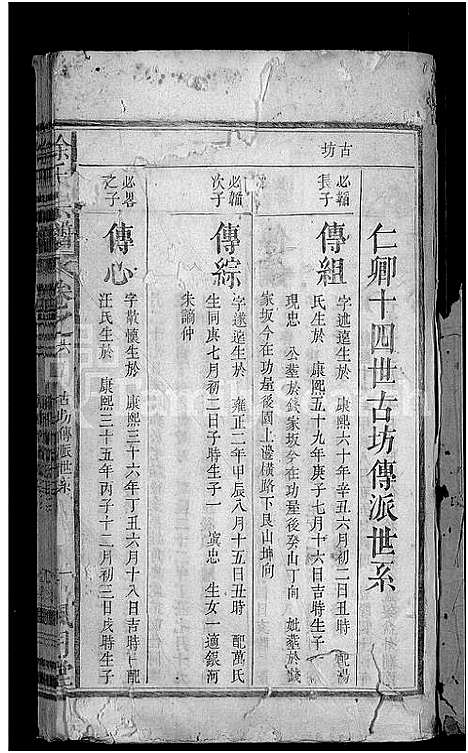 仁卿十四世古坊傳派世系
古坊
必韜長子
傳組
字述遠生於 康熙六十年辛丑六月初二日丑時 配湯
氏生於 康熙五十九年庚子七月十六日吉時生子一
現忠 公墓於錢家坂今在功壘後癸山丁向 妣墓於錢
家坂今在功壘後園上邊橫路下艮山坤向
必韜次子
傳綜
字遂遠生於 雍正二年甲辰八月十五日丑時 配萬氏
生同庚七月初二日子時生子一 續忠 生女一適銀河
朱謫仲
必畧之子
傳心
字散懷生於 康熙三十六年丁丑六月十八日吉時 配
汪氏生於 康熙三十五年丙子十二月初三日戌時生子
余氏宗譜
卷之六
古坊傳派世系
一